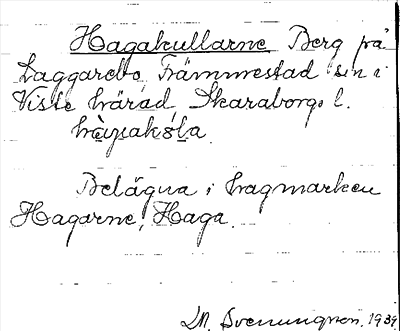 Hagakullarne Berg på
Laggarebo, Främmestad sn i
Viste härad, Skaraborgs l.
Belägna i hagmarken
Hagarne, Haga.
M. Svenungson. 1939